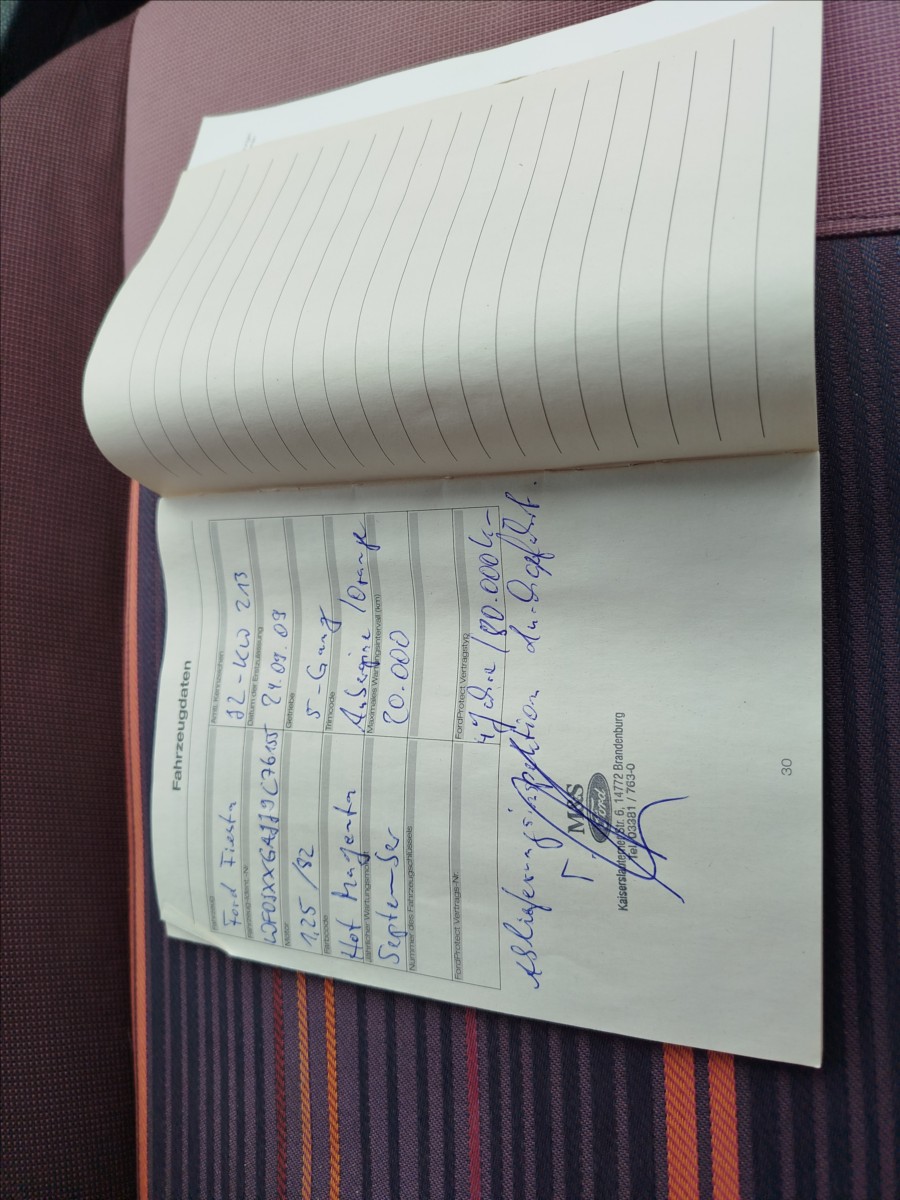 Fahrzeugdaten
Fahrzeug
Amtl. Kennzeichen
Ford Fiesta
Fahrzeug-Ident.-Nr.
Datum der Erstzulassung
24.09.09
Motor
Getriebe
1,25 / 82
5-Gang
Farbcode
Trimcode
Hot Magenta
Aubergine / Orange
Jährlicher Wartungsmonat
Maximales Wartungsintervall (km)
September
20.000
Nummer des Fahrzeugschlüssels
FordProtect Vertrags-Nr.
FordProtect Vertragstyp
4 Jahre / 80.000 km
Ablieferungsinspektion durchgeführt.
M&S
Ford
Kaiserslauterner Str. 6, 14772 Brandenburg
Tel. 03381 / 763-0
30